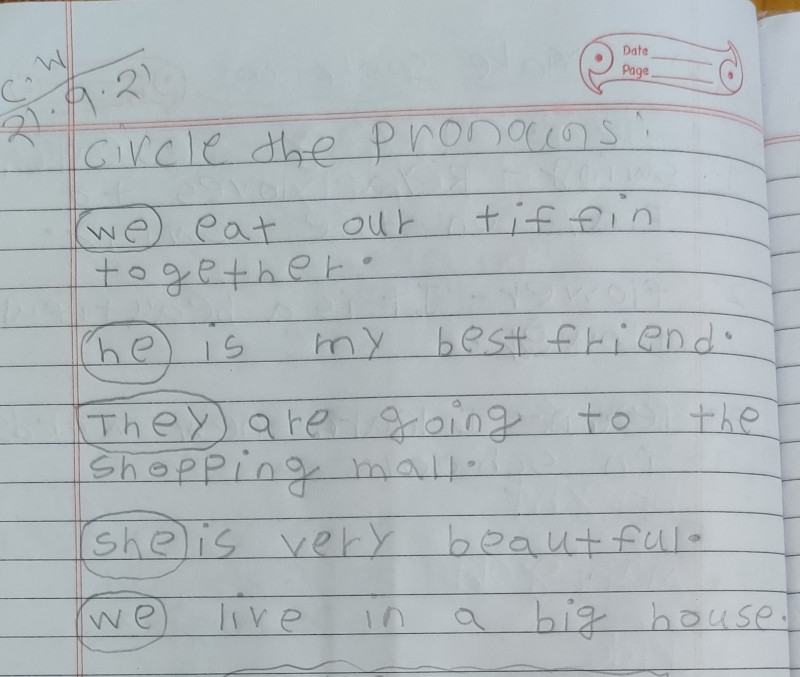 C.W
21.9.21
Date
Page
Circle the pronouns:
we eat our tiffin
together.
he is my best friend.
They are going to the
shopping mall.
she is very beautful.
we live in a big house.